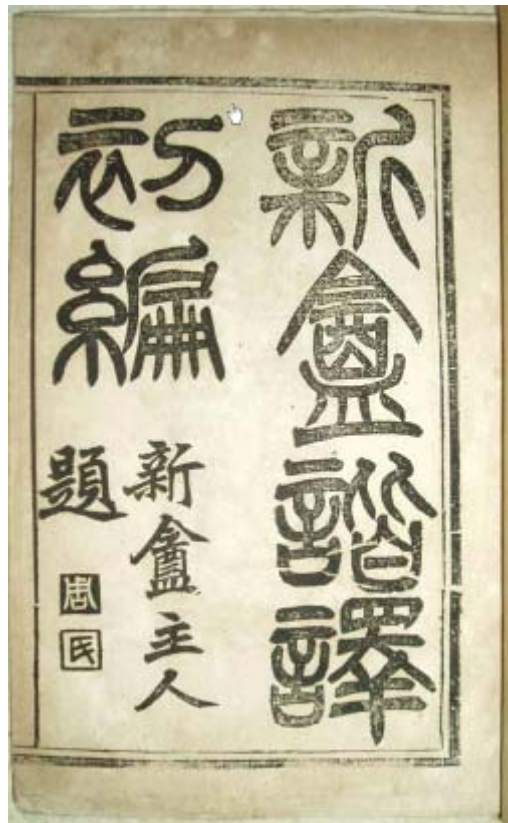 新盦諧譯
初編
新盦主人
題
周
氏